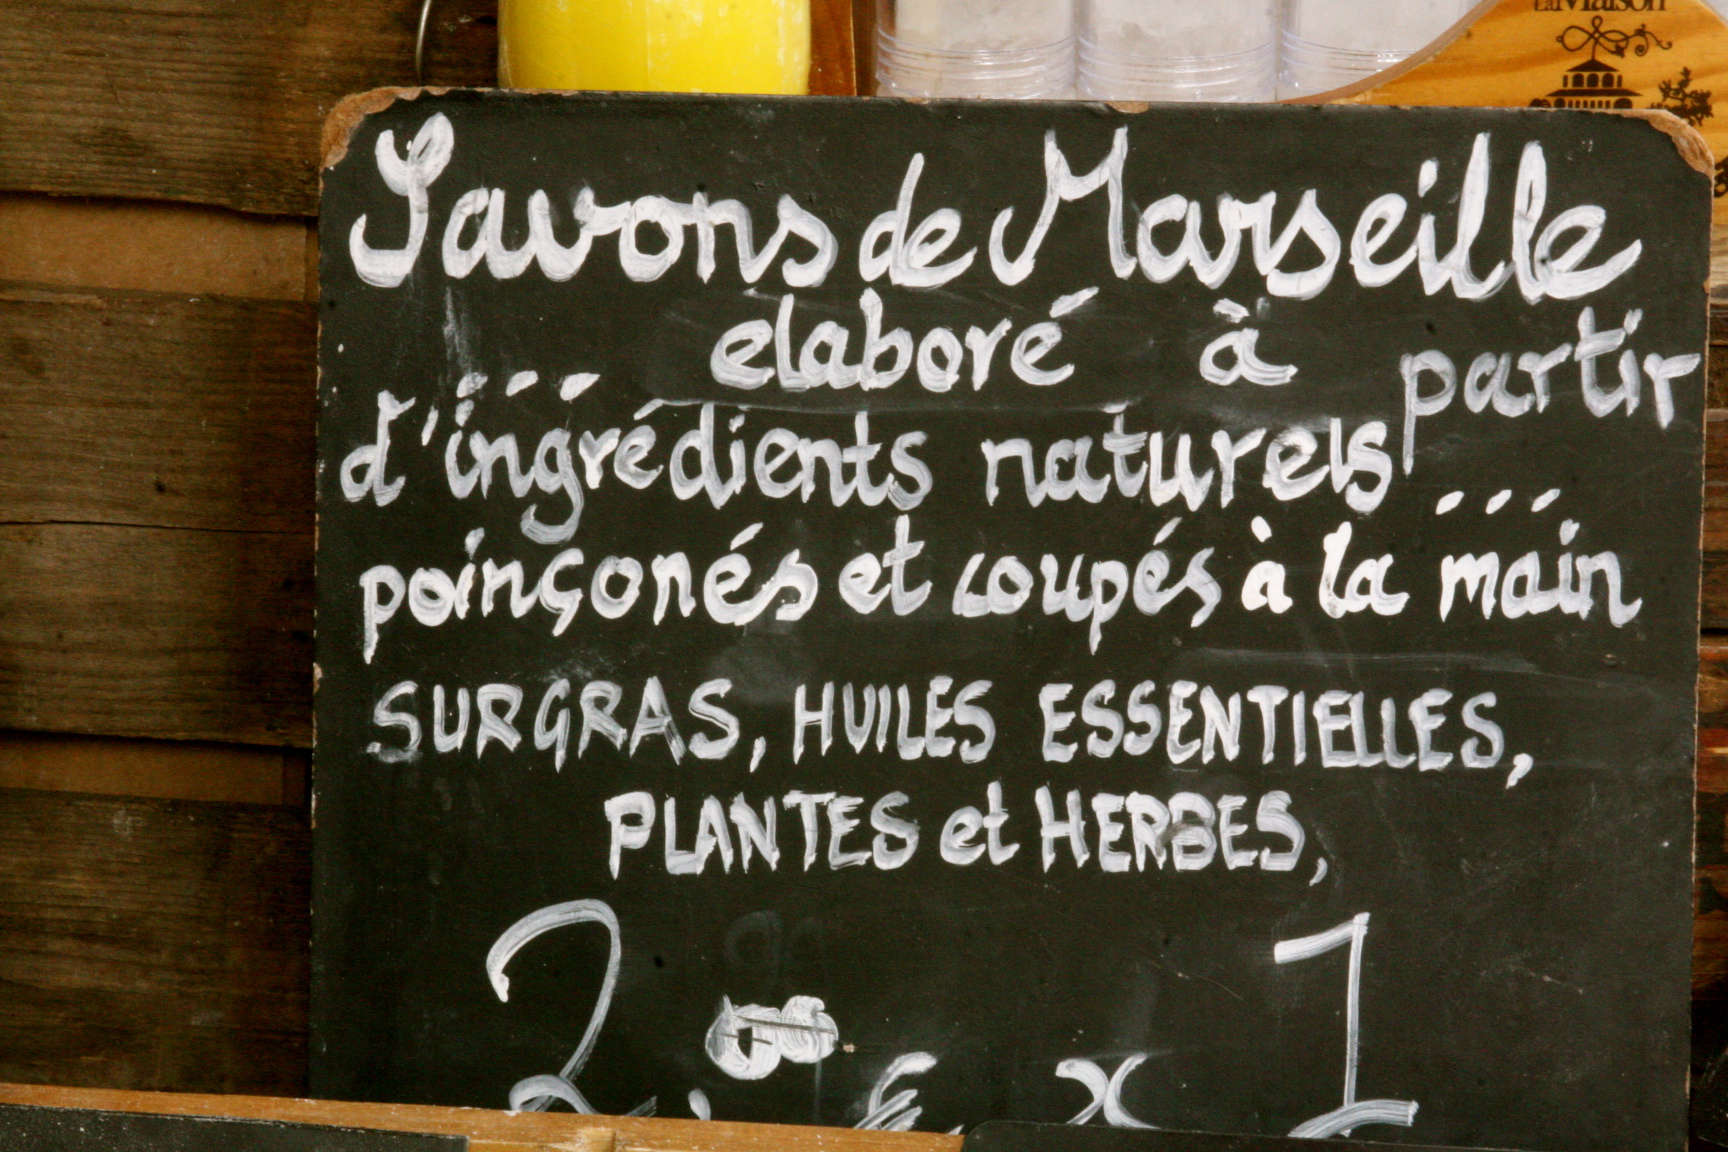 La Maison
Savons de Marseille
elaboré à partir
d'ingrédients naturels
poinçonés et coupés à la main
SURGRAS, HUILES ESSENTIELLES,
PLANTES et HERBES,
2,00 € x 1